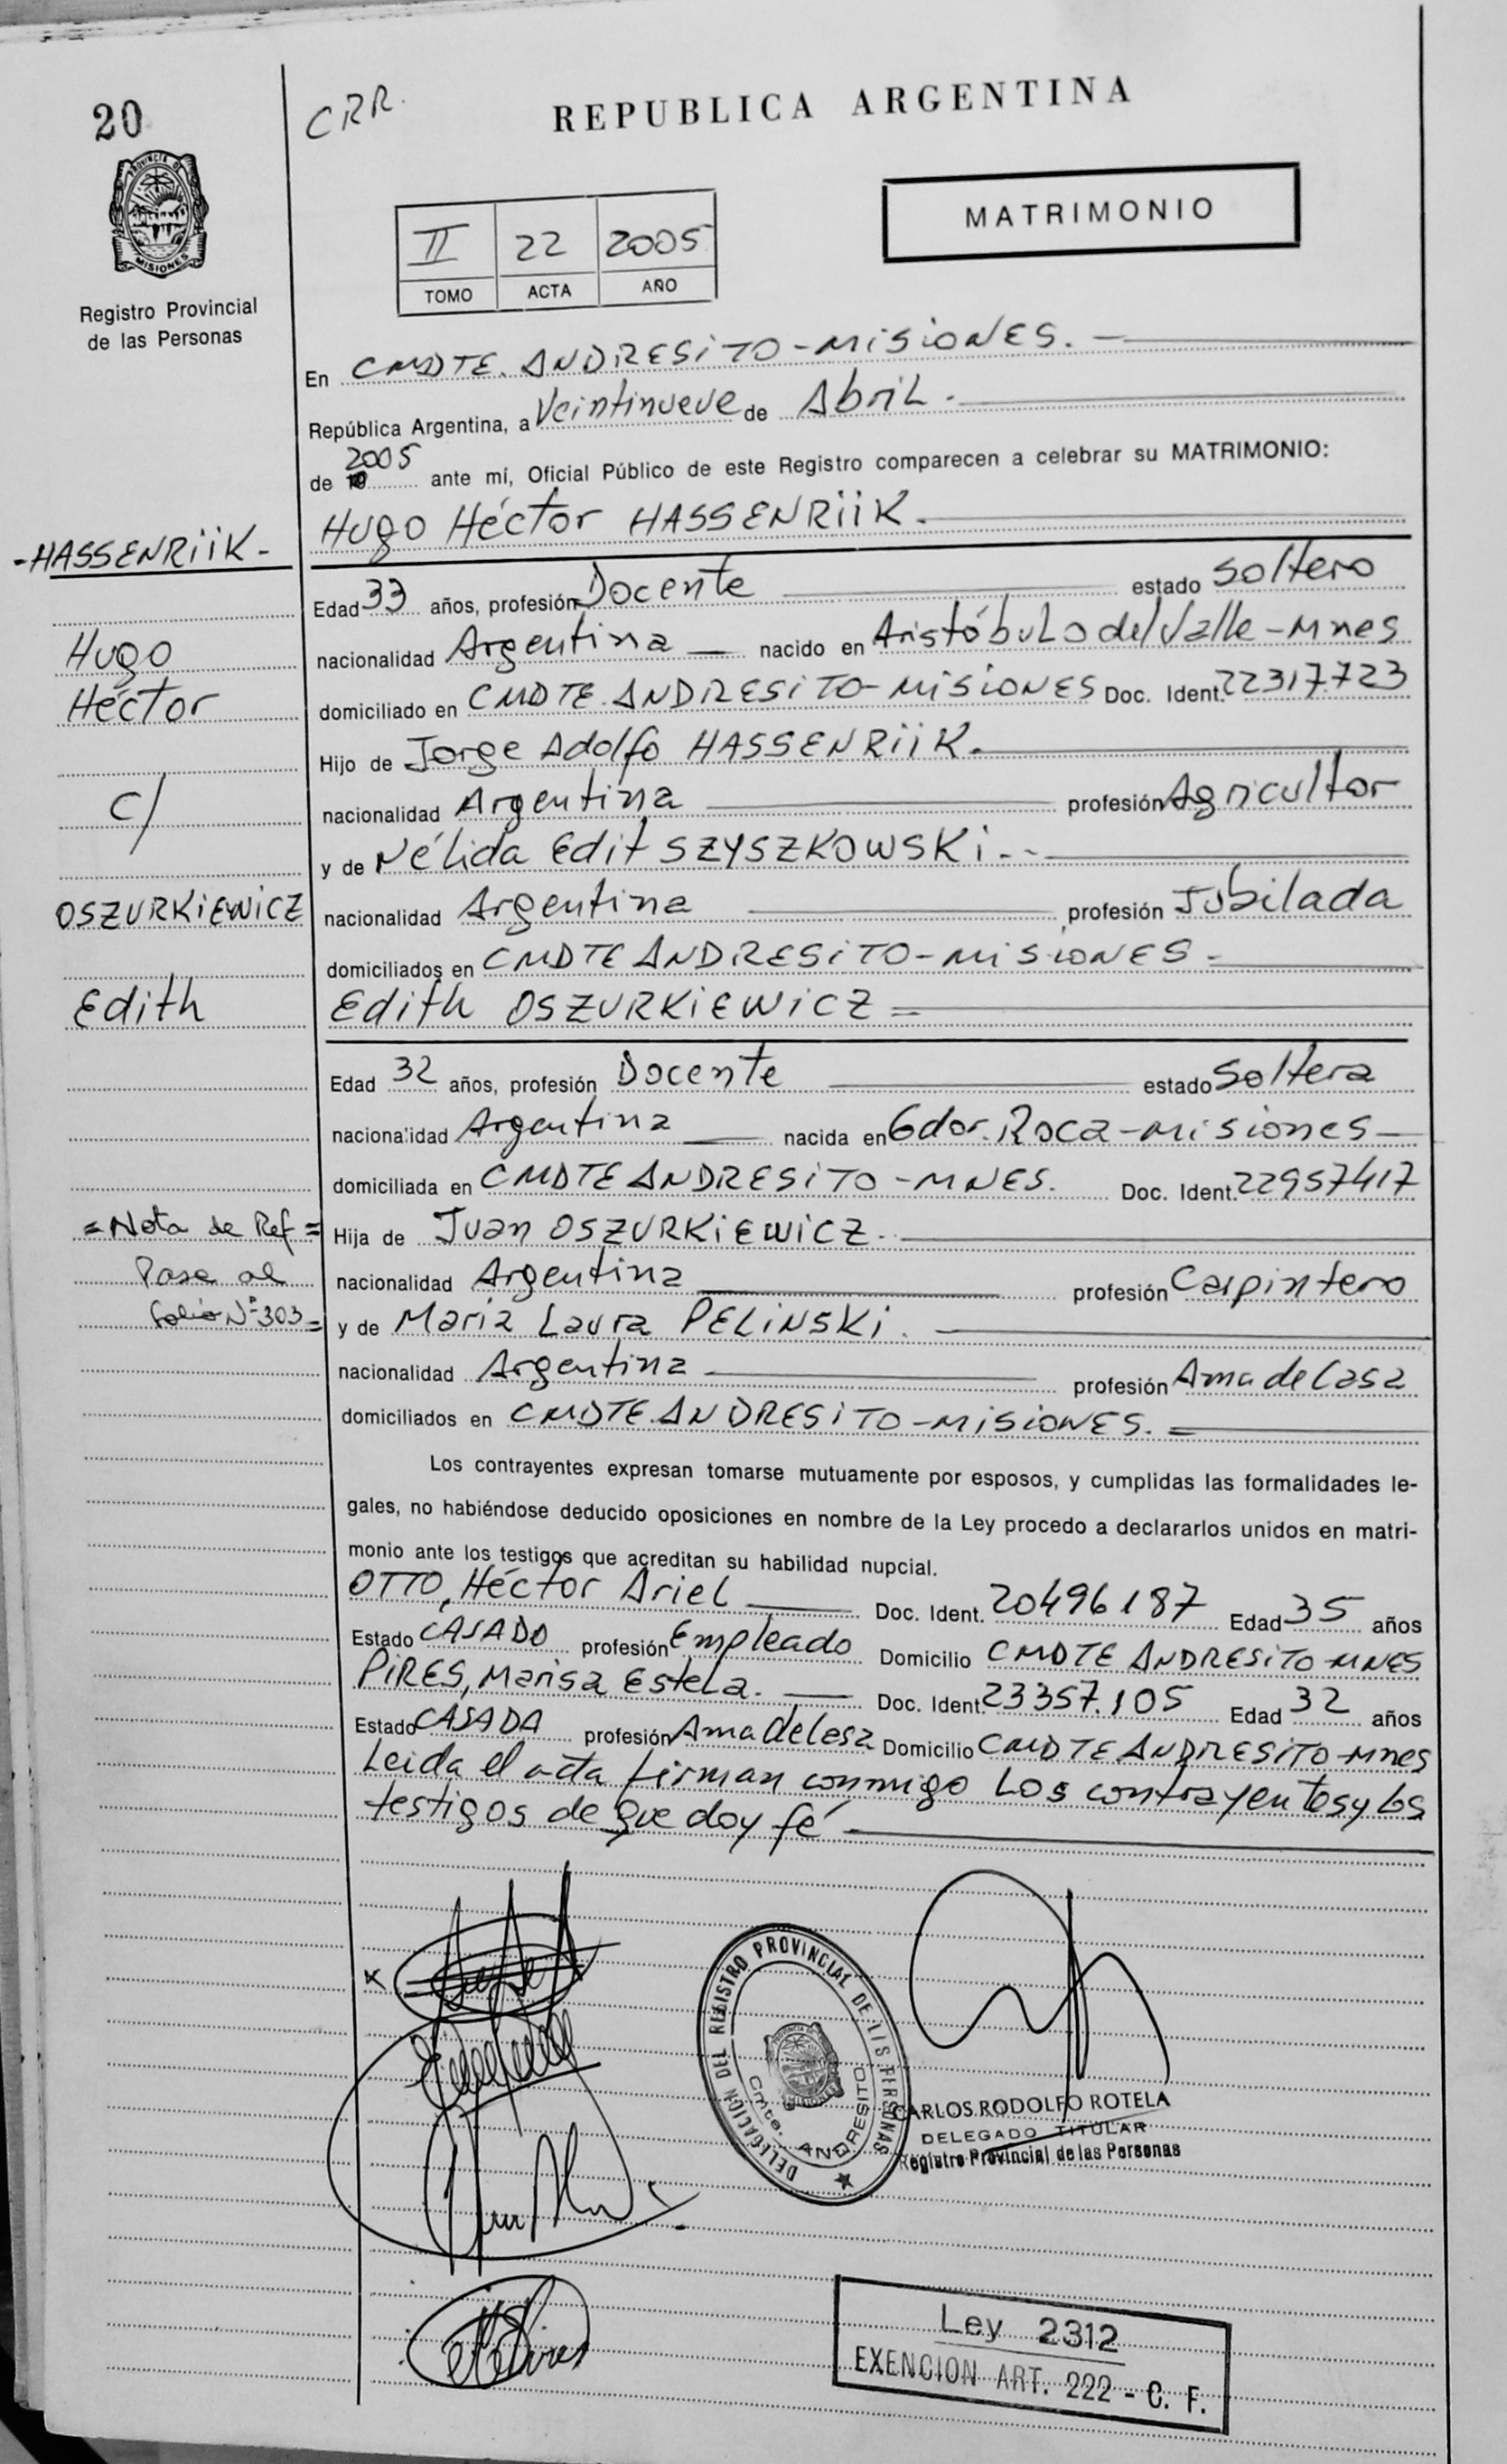 20
CRR.
REPUBLICA ARGENTINA
PROVINCIA DE
MISIONES
Registro Provincial
de las Personas
MATRIMONIO
II 22 2005
TOMO ACTA AÑO
En CMDTE. ANDRESITO - MISIONES.
República Argentina, a Veintinueve de Abril.
de 2005 ante mí, Oficial Público de este Registro comparecen a celebrar su MATRIMONIO:
Hugo Héctor HASSENRIIK.
-HASSENRIIK-
Edad 33 años, profesión Docente estado Soltero
Hugo
nacionalidad Argentina nacido en Aristóbulo del Valle - Mnes
Héctor
domiciliado en CMDTE. ANDRESITO - MISIONES Doc. Ident. 22317.723
Hijo de Jorge Adolfo HASSENRIIK.
C/
nacionalidad Argentina profesión Agricultor
y de Nélida Edit SZYSZKOWSKI.-
OSZURKIEWICZ
nacionalidad Argentina profesión Jubilada
domiciliados en CMDTE ANDRESITO - MISIONES -
Edith
Edith OSZURKIEWICZ =
Edad 32 años, profesión Docente estado Soltera
nacionalidad Argentina nacida en Gdor. Roca - Misiones
domiciliada en CMDTE ANDRESITO - MNES. Doc. Ident. 22957417
= Nota de Ref =
Hija de Juan OSZURKIEWICZ.
Pase al
nacionalidad Argentina profesión Carpintero
folio Nº 303 =
y de María Laura PELINSKI.
nacionalidad Argentina profesión Ama de Casa
domiciliados en CMDTE. ANDRESITO - MISIONES. =
Los contrayentes expresan tomarse mutuamente por esposos, y cumplidas las formalidades le-
gales, no habiéndose deducido oposiciones en nombre de la Ley procedo a declararlos unidos en matri-
monio ante los testigos que acreditan su habilidad nupcial.
OTTO, Héctor Ariel Doc. Ident. 20496187 Edad 35 años
Estado CASADO profesión Empleado Domicilio CMDTE ANDRESITO MNES
PIRES, Marisa Estela. Doc. Ident. 23357.105 Edad 32 años
Estado CASADA profesión Ama de Casa Domicilio CMDTE ANDRESITO - Mnes
Leida el acta firman conmigo los contrayentes y los
testigos de que doy fé
DELEGACION DEL REGISTRO PROVINCIAL DE LAS PERSONAS
Cmte. ANDRESITO
CARLOS RODOLFO ROTELA
DELEGADO TITULAR
Registro Provincial de las Personas
Ley 2312
EXENCION ART. 222 - C. F.